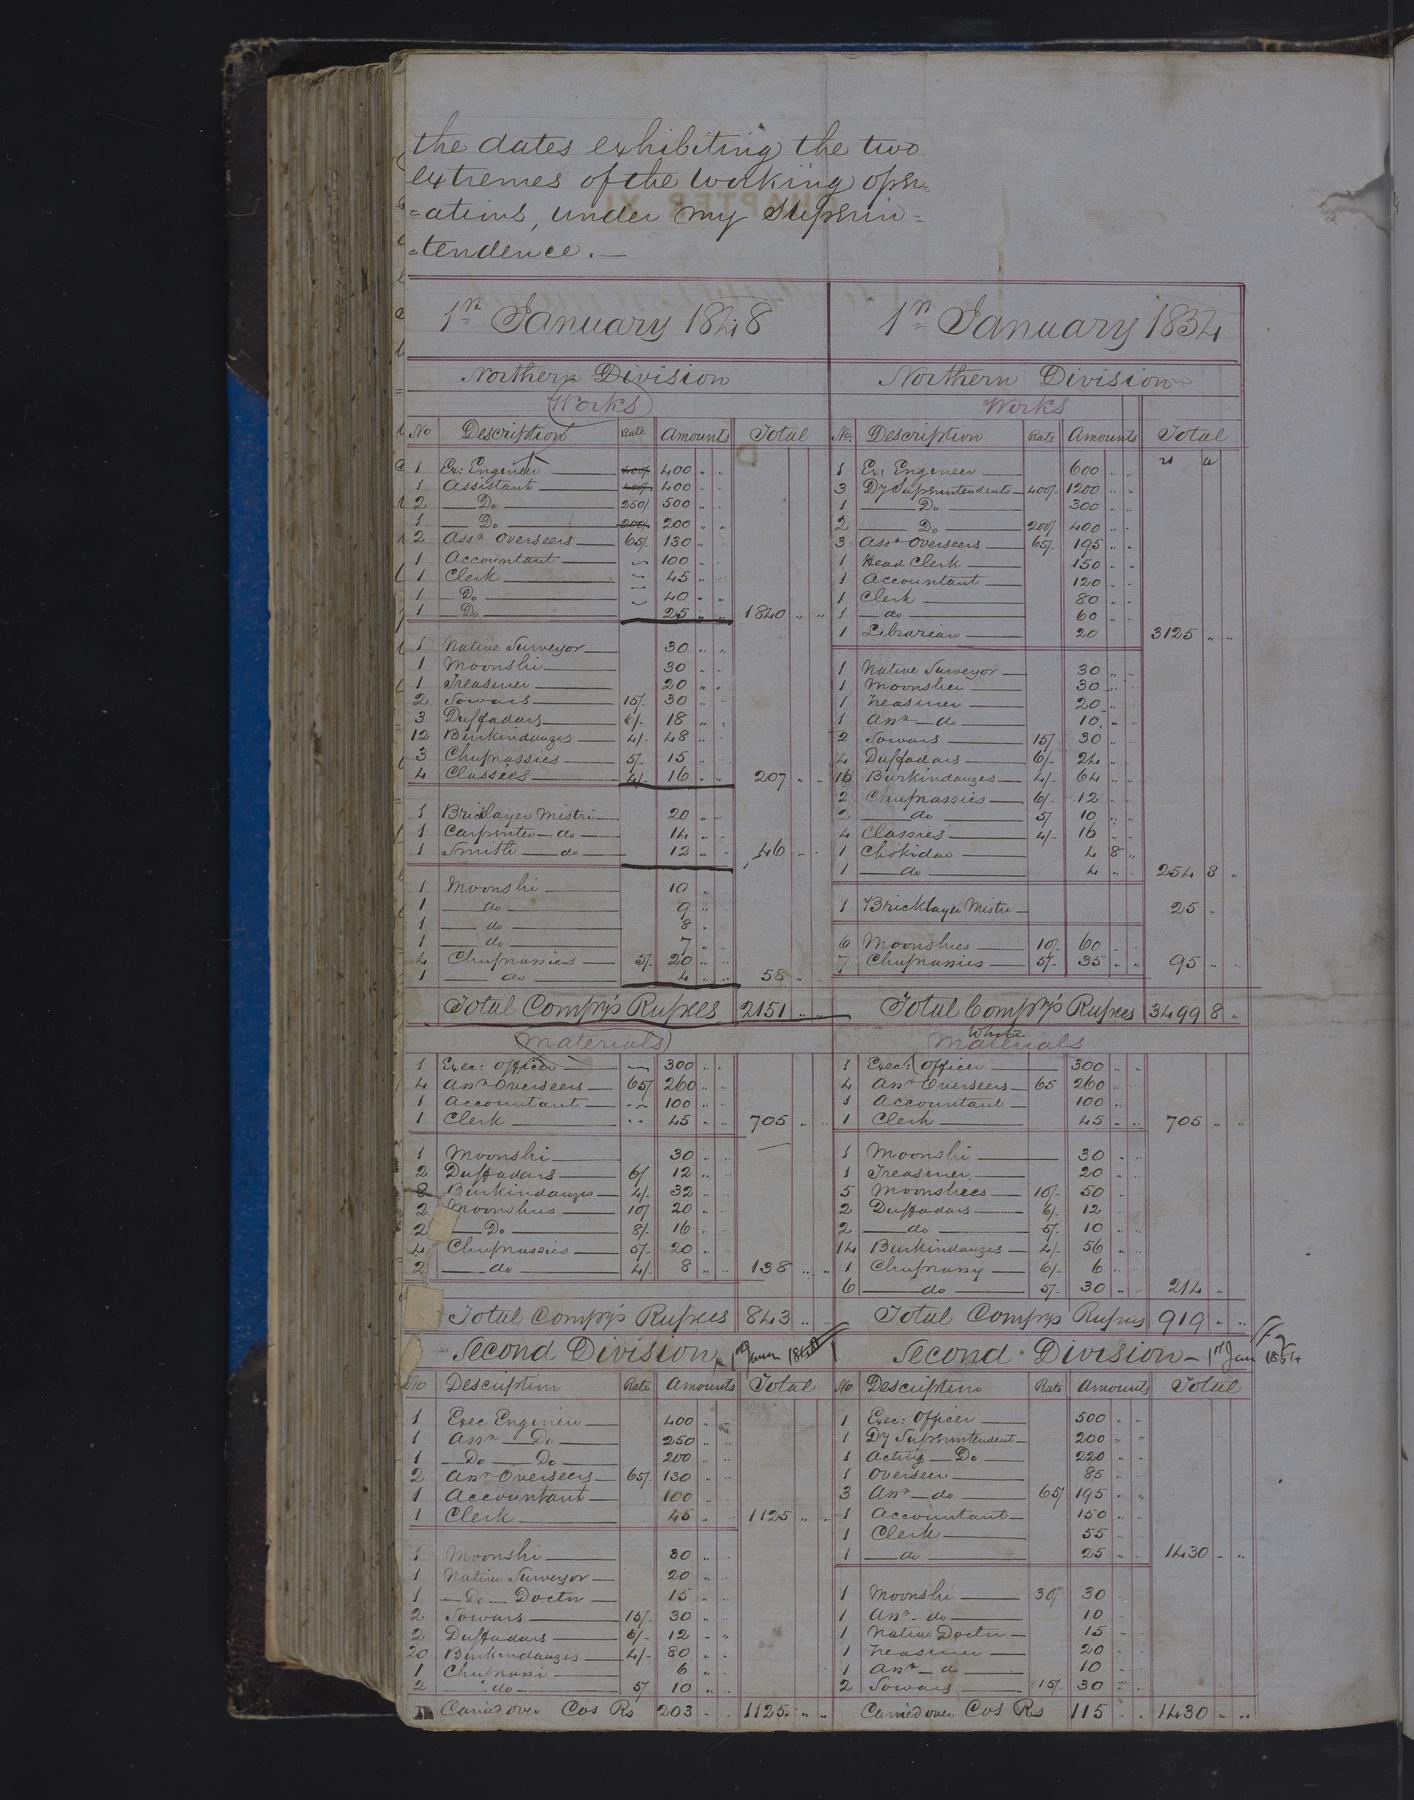 the dates exhibiting the two
extremes of the working oper-
=ations, under my superin=
=tendence.—
1st January 1848
Northern Division
Works
No Description Rate Amounts Total
1 Ex: Engineer 400/ 400 " "
1 Assistant 400/ 400 " "
2 Do 250/ 500 " "
1 Do 200/ 200 " "
2 Asst Overseers 65/. 130 " "
1 Accountant 100 " "
1 Clerk 45 " "
1 Do 40 " "
1 Do 25 " " 1840 " "
1 Native Surveyor 30 " "
1 Moonshi 30 " "
1 Treasurer 20 " "
2 Sowars 15/. 30 " "
3 Duffadars 6/. 18 " "
12 Burkindauzes 4/. 48 " "
3 Chuprassies 5/. 15 " "
4 Classees 4/. 16 " " 207 " "
1 Bricklayer Mistri 20 " "
1 Carpenter do 14 " "
1 Smith do 12 " " 46 " "
1 Moonshi 10 "
1 do 9 "
1 do 8 "
1 do 7 "
4 Chuprassies 5/. 20 " "
1 do 4 " " 58 "
Total Compy's Rupees 2151 " "
Materials
1 Exec: Officer 300 " "
4 Asst Overseers 65/ 260 " "
1 Accountant 100 " "
1 Clerk 45 " " 705 " "
1 Moonshi 30 " "
2 Duffadars 6/ 12 " "
8 Burkindauzes 4/. 32 " "
2 Moonshies 10/ 20 " "
2 Do 8/. 16 " "
4 Chuprassies 5/. 20 " "
2 do 4/ 8 " " 138 " "
Total Compy's Rupees 843 " "
Second Division, 1st Janu
No Description Rate Amounts Total
1 Exec Engineer 400 " "
1 Asst Do 250 " "
1 Do Do 200 " "
2 Asst Overseers 65/. 130 " "
1 Accountant 100 "
1 Clerk 45 " " 1125 " "
1 Moonshi 30 " "
1 Native Surveyor 20 " "
1 Do Doctor 15 " "
2 Sowars 15/. 30 " "
2 Duffadars 6/. 12 " "
20 Burkindauzes 4/. 80 " "
1 Chuprassi 6 " "
2 do 5/ 10 " "
Carried over Cos Rs 203 " " 1125 " "
1st January 1854
Northern Division
Works
No. Description Rate Amounts Total
rs a
1 Ex: Engineer 600 " "
3 Dy Superintendents 400/. 1200 " "
1 Do 300 " "
2 Do 200/ 400 " "
3 Asst Overseers 65/. 195 " "
1 Head Clerk 150 " "
1 Accountant 120 " "
1 Clerk 80 " "
1 do 60 " "
1 Librarian 20 3125 " "
1 Native Surveyor 30 " "
1 Moonshee 30 " "
1 Treasurer 20 "
1 Asst do 10 " "
2 Sowars 15/ 30 "
4 Duffadars 6/. 24 "
16 Burkindauzes 4/. 64 " "
2 Chuprassies 6/. 12 "
2 do 5/ 10 " "
4 Classies 4/. 16 "
1 Chokidar 4 8 "
1 do 4 " " 254 8 "
1 Bricklayer Mistri 25 "
6 Moonshees 10/. 60 "
7 Chuprassies 5/. 35 " " 95 " "
Total Compy's Rupees 3499 8 "
White
Materials
1 Exec: Officer 300 " "
4 Asst Overseers 65 260 "
1 Accountant 100 "
1 Clerk 45 " " 705 " "
1 Moonshi 30 "
1 Treasurer 20 "
5 Moonshees 10/. 50 "
2 Duffadars 6/. 12 "
2 do 5/. 10 "
14 Burkindauzes 4/. 56 "
1 Chuprassy 6/. 6 "
6 do 5/. 30 " 214 "
Total Compys Rupees 919 " "
Second Division - 1st Jan 1854
No Description Rate Amounts Total
1 Exec: Officer 500 " "
1 Dy Superintendent 200 " "
1 Acting Do 220 "
1 Overseer 85 "
3 Asst do 65/ 195 " "
1 Accountant 150 "
1 Clerk 55 "
1 do 25 " " 1430 " "
1 Moonshi 30/ 30 "
1 Asst do 10 "
1 Native Doctor 15 "
1 Treasurer 20 "
1 Asst do 10 "
2 Sowars 15/. 30 "
Carried over Cos Rs 115 " 1430 " "